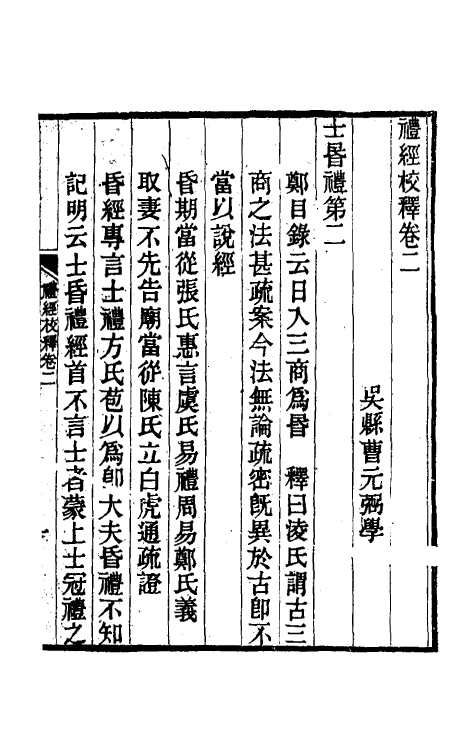 禮經校釋卷二
吳縣曹元弼學
士昬禮第二
鄭目錄云日入三商爲昬　釋曰淩氏謂古三
商之法甚疏案今法無論疏密旣異於古卽不
當以說經
昏期當從張氏惠言虞氏易禮周易鄭氏義
取妻不先告廟當從陳氏立白虎通疏證
昏經專言士禮方氏苞以爲卽大夫昏禮不知
記明云士昏禮經首不言士者蒙上士冠禮之
禮經校釋卷二